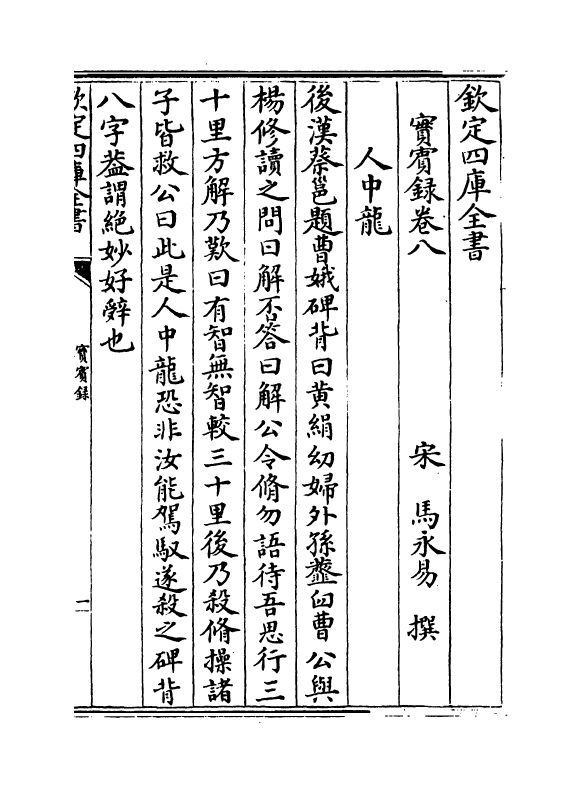 欽定四庫全書
實賓録卷八
宋 馬永易 撰
人中龍
後漢蔡邕題曹娥碑背曰黄絹幼婦外孫虀臼曹公與
楊修讀之問曰解否答曰解公令脩勿語待吾思行三
十里方解乃歎曰有智無智較三十里後乃殺脩操諸
子皆救公曰此是人中龍恐非汝能駕馭遂殺之碑背
八字葢謂絶妙好辤也
欽定四庫全書
實賓録
一